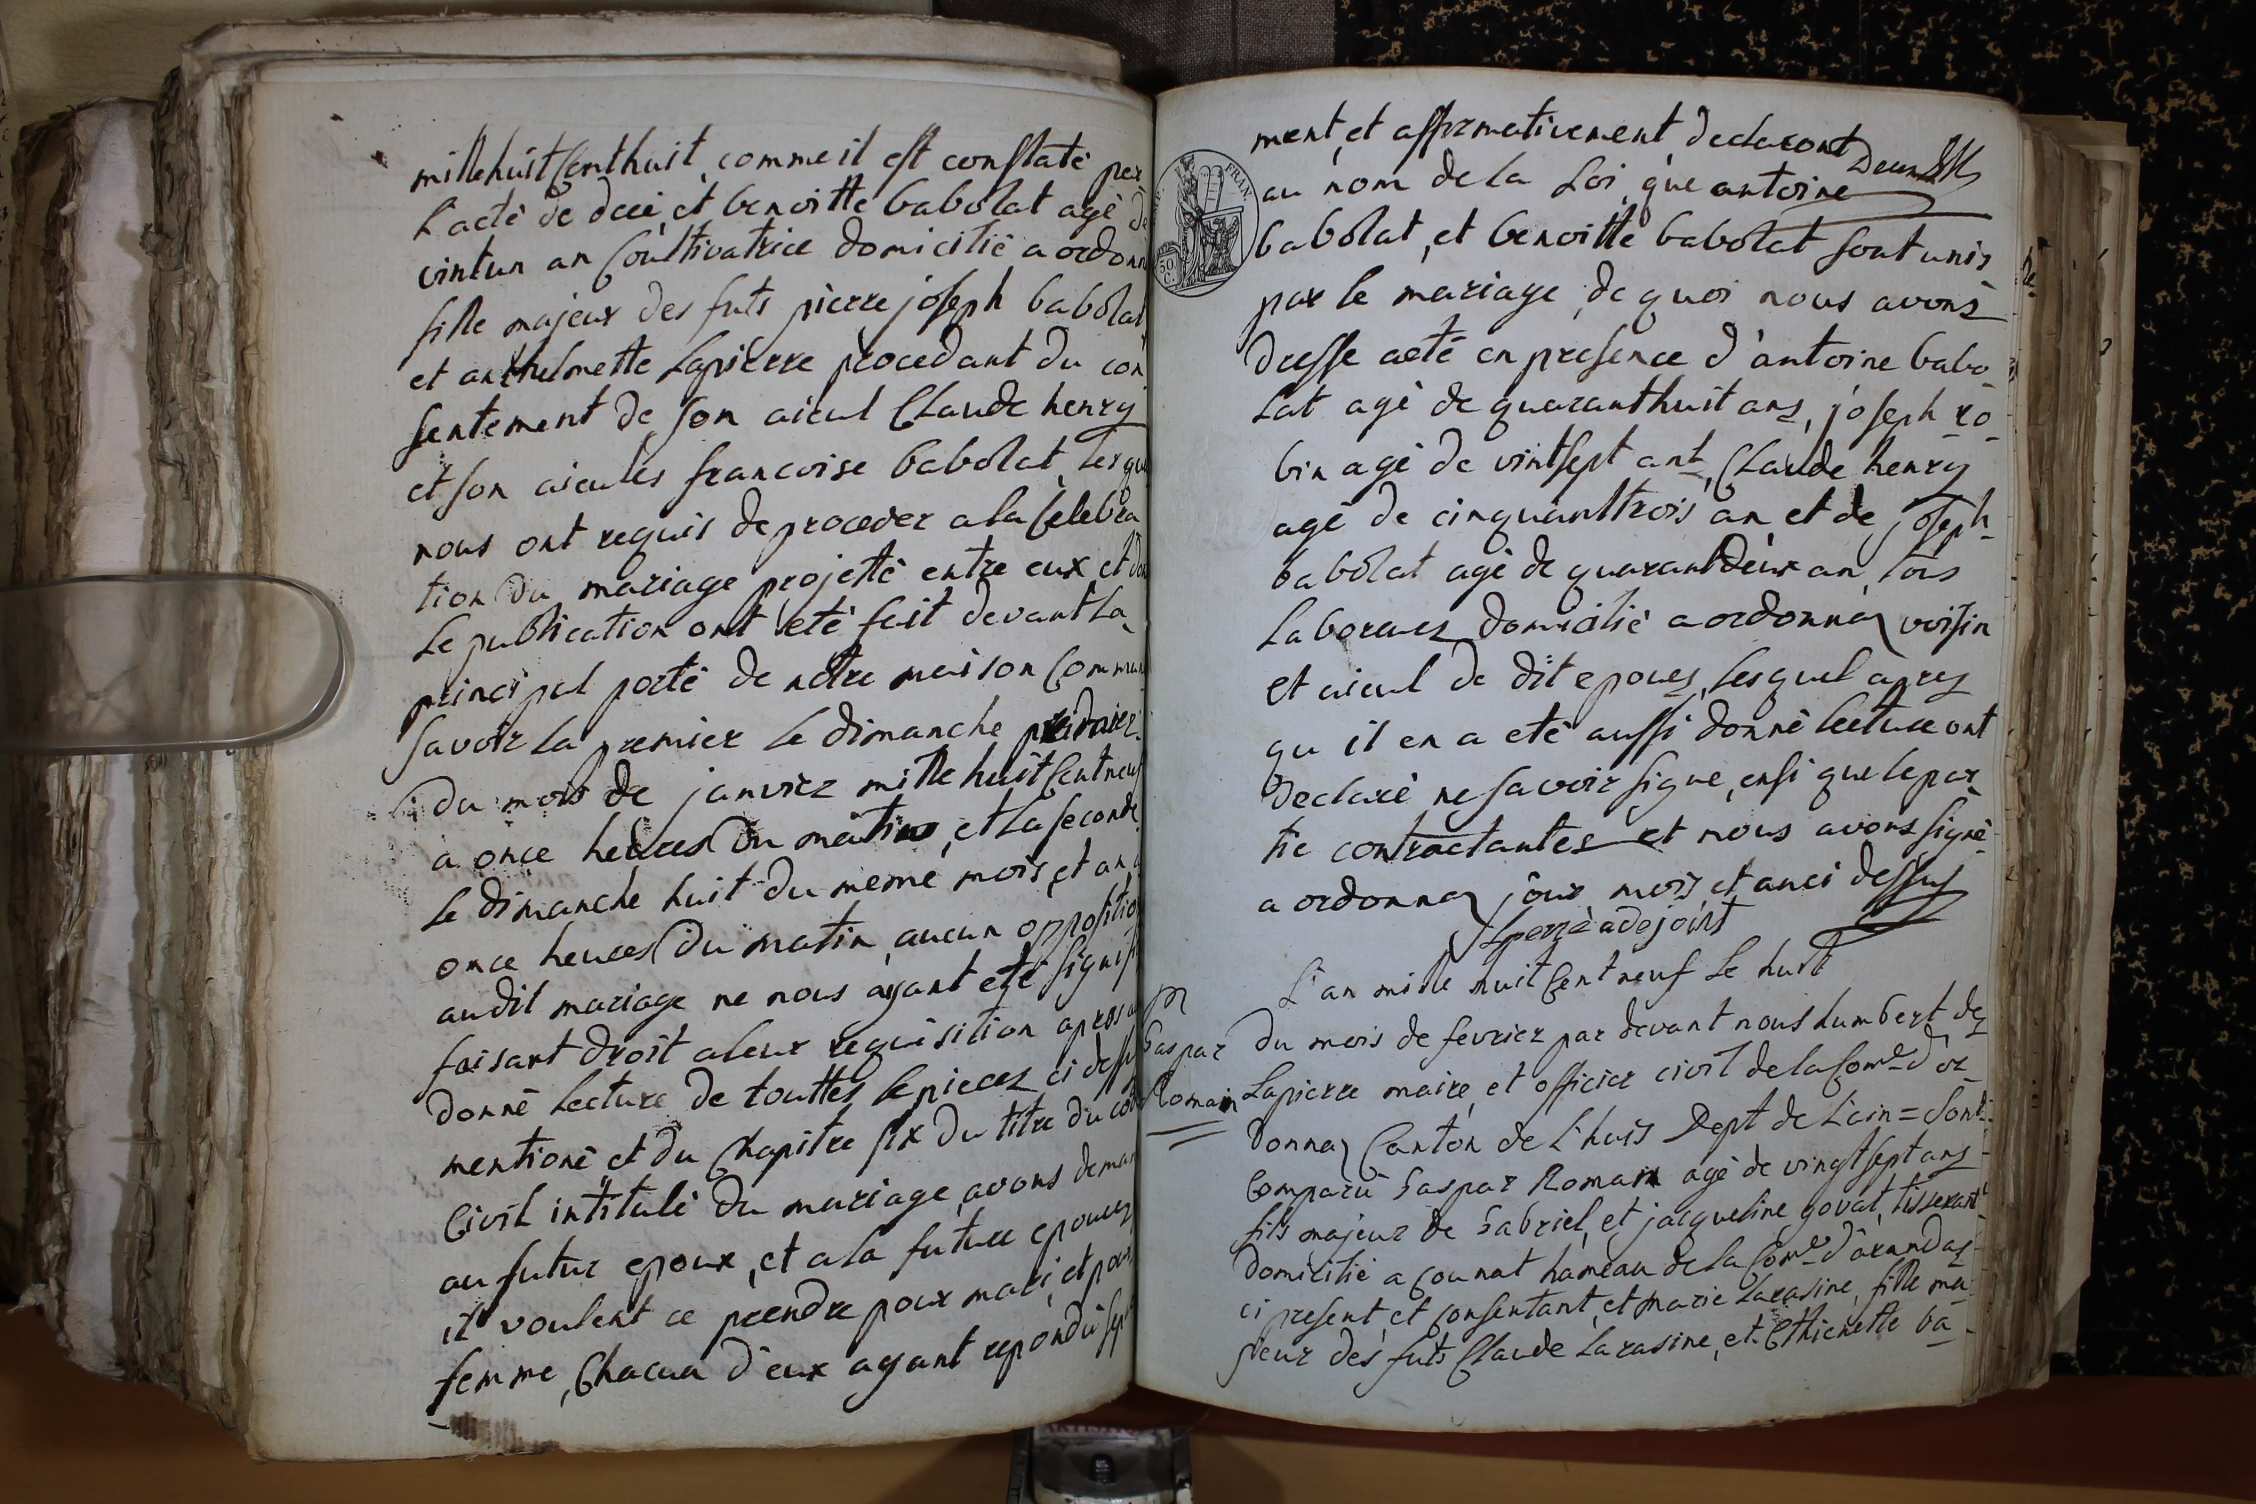 millehuit Centhuit comme il est constaté par
L'acté de decé, et benoitte babolat agé de
vintun an Coultivatrice domicilié a ordonn
fille majeur des futs pierre joseph babolat
et anthelmette Lapierre procedant du con
sentement de son aieul Claude henry
et son aieulés francoise babolat, les que
nous ont requis de proceder a la Celebra
tion du mariage projetté entre eux et don
Le publication ont eté fait devant La
principal porté de nôtre maison Commun
Savoir La premier Le dimanche
du mois de janvier mille huit Cent neuf
a once heures du matin, et La seconde
Le dimanche huit du meme mois et an a
once heures du matin, aucun oppositio
audit mariage ne nous ayant eté signifi
faisant droit a leur requisition apres a
donné Lecture de touttes Le pieces ci dessu
mentioné et du Chapitre six du titre du cod
Civil intitulé du mariage, avons deman
au futur epoux, et a la future epouuez
il voulent ce prendre pour mari, et pour
femme, Chacun d'eux ayant repondu sep
ment, et affirmativement declaront
au nom de la Loi, que antoine
babolat, et benoitte babolat sont unis
par le mariage, de quoi nous avons
dresse acté en presence d'antoine babo
Lat agé de quaranthuit ans, joseph ro
bin agé de vintsept ant, Claude henry
agé de cinquanttrois an et de joseph
babolat agé de quarantdeux an, tous
Laboreuez domicilié a ordonnaz voisin
et aieul de dit epouez, Lesquel aprez
qu il en a eté aussi donné Lecture ont
declaré ne savoir signe, ensi que le par
tie contractantes et nous avons signé
a ordonnaz jour mois et anci dessus
Lperré adejoint
L'an mille huit Cent neuf Le huit
du mois de fevrier par devant nous humbert de
Lapierre maire et officier civil de la Com.e d'or
donnaz Canton de L'huis Dept de L'ain = Sont
Comparu Gaspar Romain agé de vingtsept ans
fils majeur de Gabriel, et jacqueline govat, tisserant
domicilié a Counat hameau de la Com.e d'arandas
ci present, et Consentant, et marie Larasine, fille ma
jeur dés futs Claude Larasine, et Ethienette ba
M
Gaspar
Romain
FRAN.
50
C.